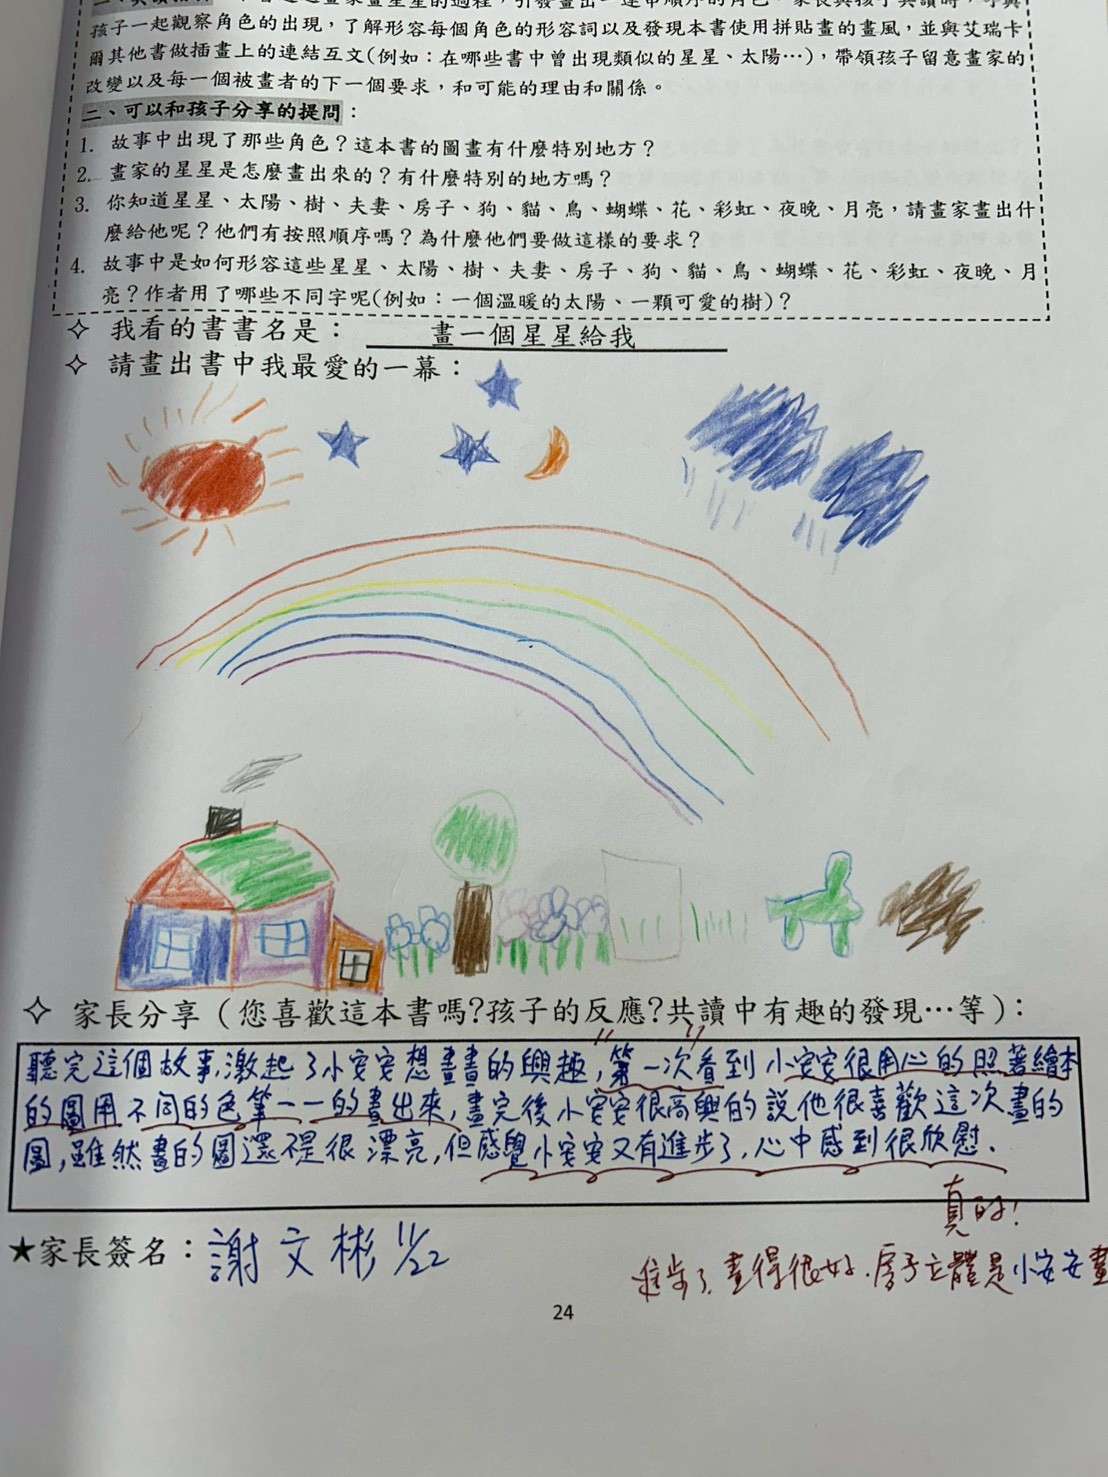 孩子一起觀察角色的出現，了解形容每個角色的形容詞以及發現本書使用拼貼畫的畫風，並與艾瑞卡
爾其他書做插畫上的連結互文(例如：在哪些書中曾出現類似的星星、太陽…)，帶領孩子留意畫家的
改變以及每一個被畫者的下一個要求，和可能的理由和關係。
二、可以和孩子分享的提問：
1. 故事中出現了那些角色？這本書的圖畫有什麼特別地方？
2. 畫家的星星是怎麼畫出來的？有什麼特別的地方嗎？
3. 你知道星星、太陽、樹、夫妻、房子、狗、貓、鳥、蝴蝶、花、彩虹、夜晚、月亮，請畫家畫出什
麼給他呢？他們有按照順序嗎？為什麼他們要做這樣的要求？
4. 故事中是如何形容這些星星、太陽、樹、夫妻、房子、狗、貓、鳥、蝴蝶、花、彩虹、夜晚、月
亮？作者用了哪些不同字呢(例如：一個溫暖的太陽、一顆可愛的樹)？
✧ 我看的書書名是： 畫一個星星給我
✧ 請畫出書中我最愛的一幕：
✧ 家長分享（您喜歡這本書嗎?孩子的反應?共讀中有趣的發現…等）：
聽完這個故事,激起了小安安想畫畫的興趣,第一次看到小安安很用心的照著繪本
的圖用不同的色筆一一的畫出來,畫完後小安安很高興的說他很喜歡這次畫的
圖,雖然畫的圖還不是很漂亮,但感覺小安安又有進步了,心中感到很欣慰.
真的!
★家長簽名：謝文彬 11/22
進步了,畫得很好.房子立體是小安安畫
24